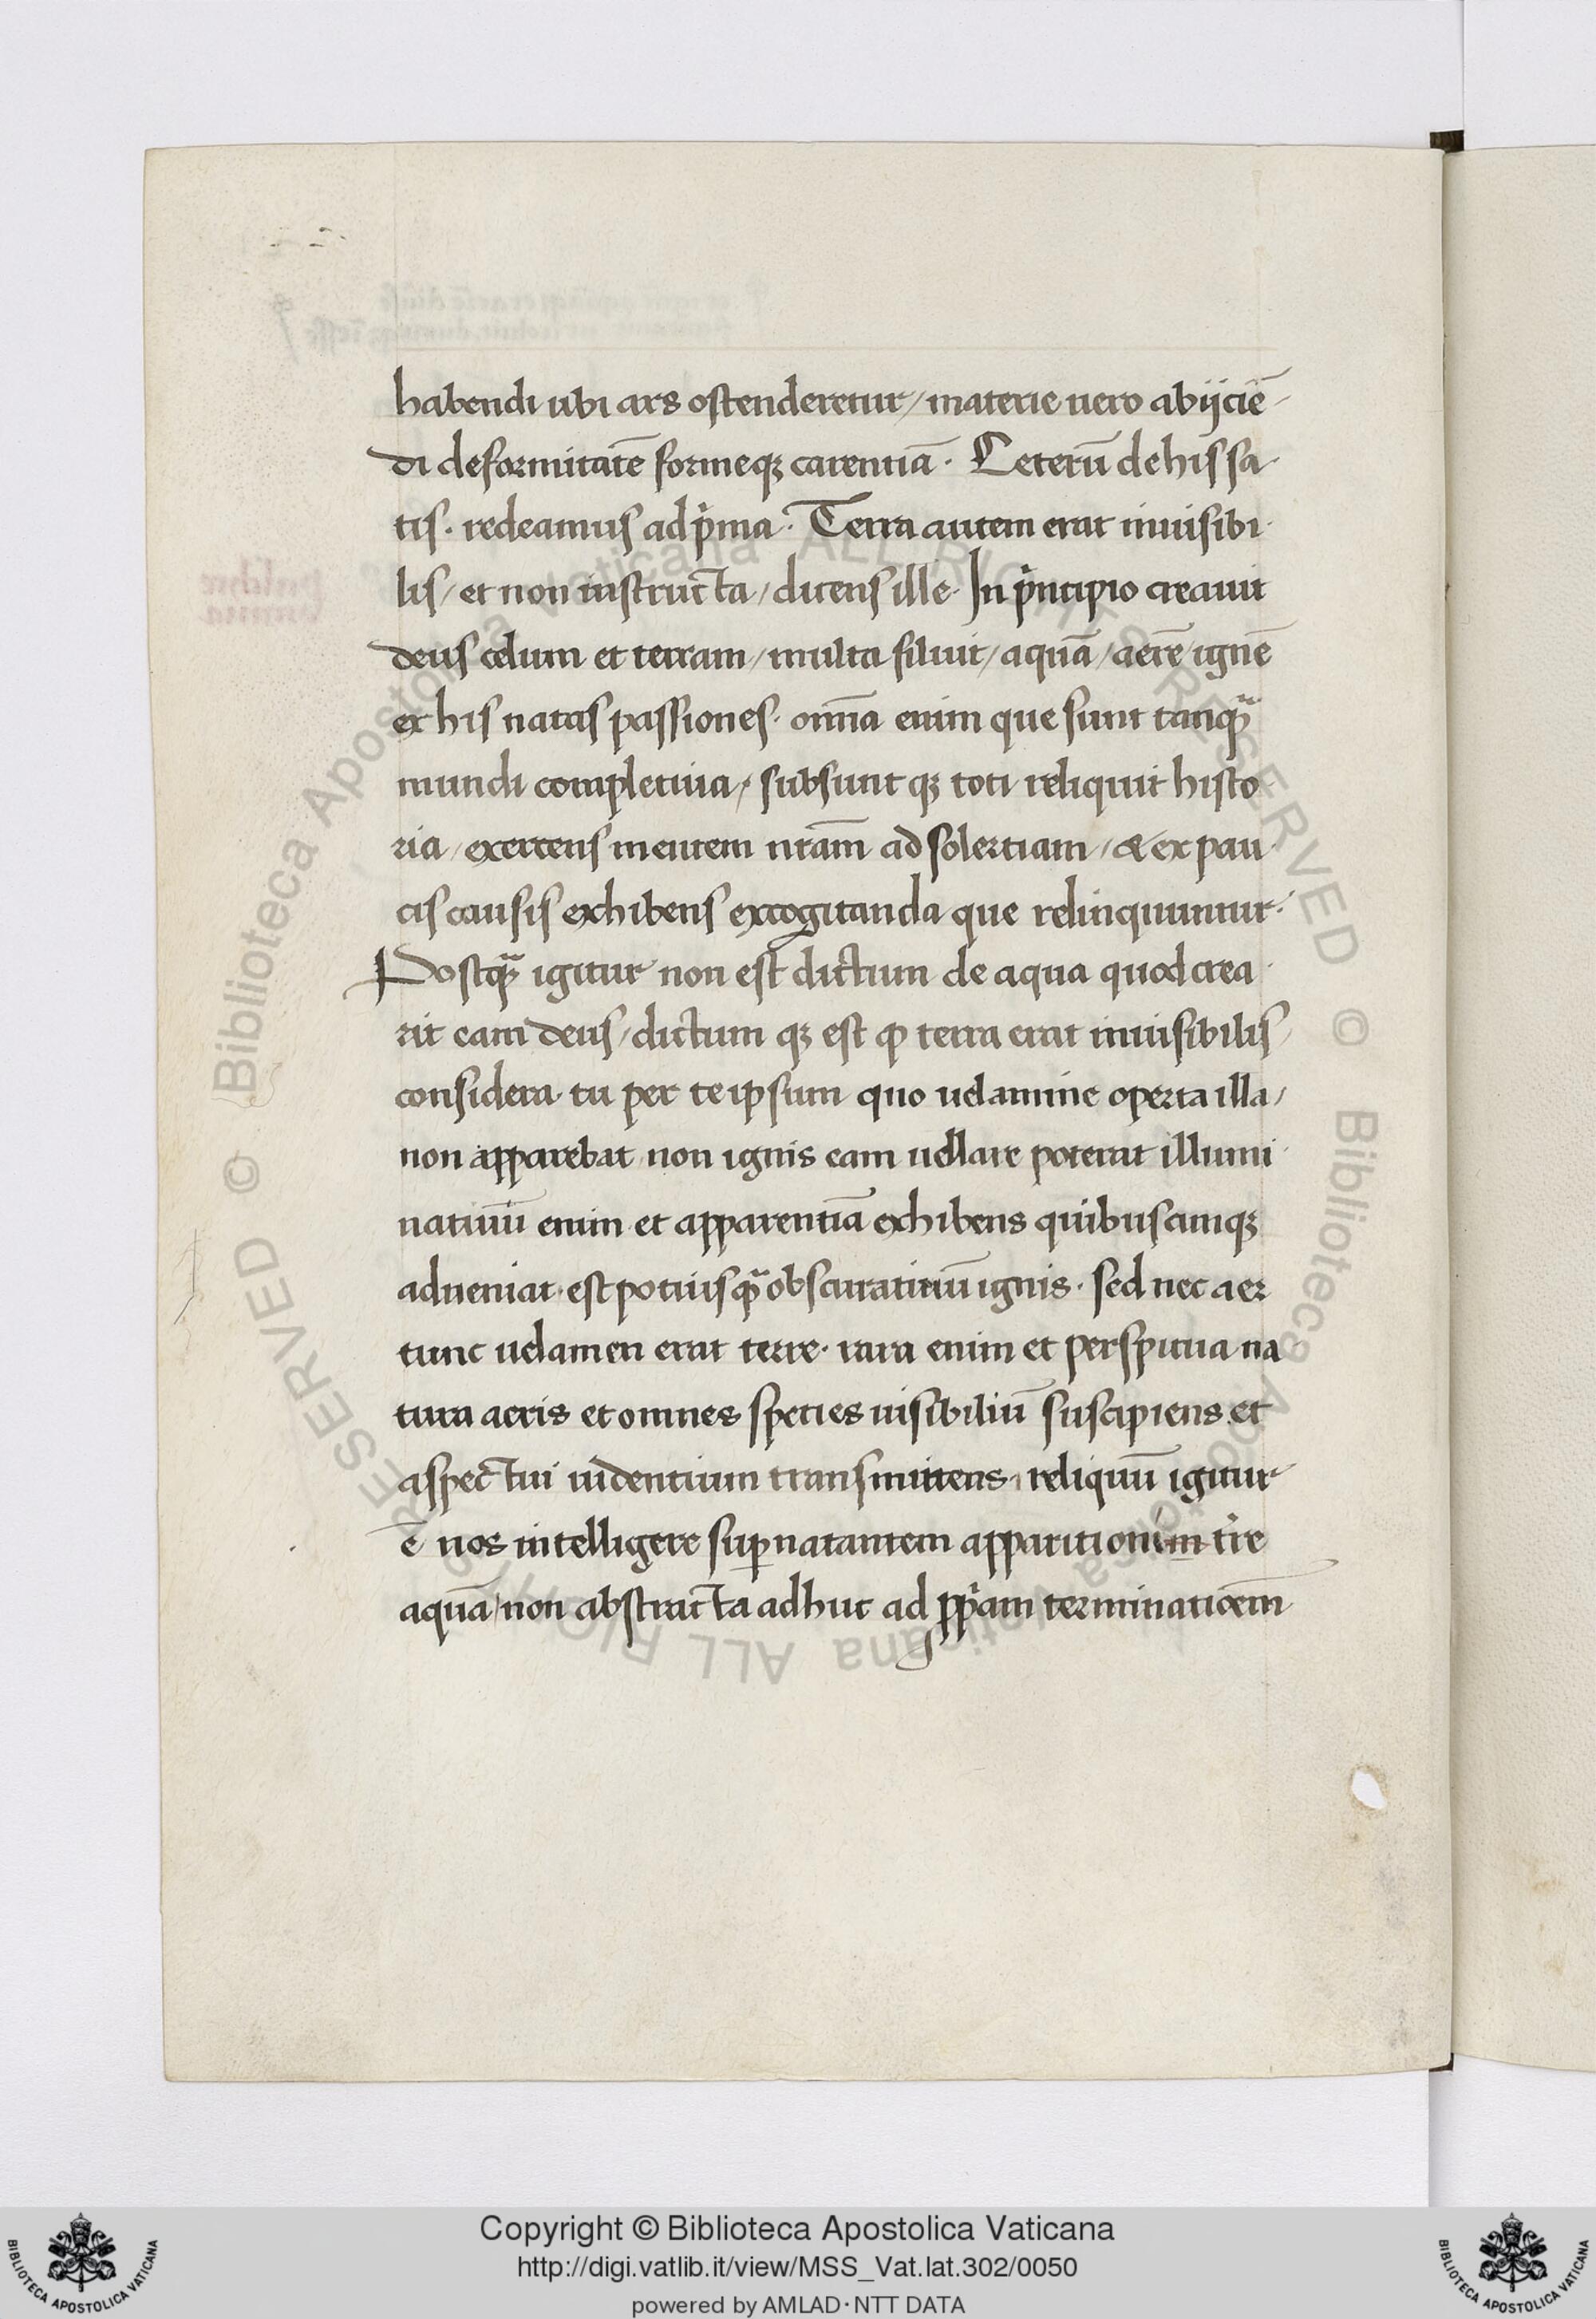 habendi ubi ars ostenderetur / materie uero abijciē-
di deformitatē formeqꝫ carentiā · Ceterū de his sa-
tis · redeamus ad pͥma · Terra autem erat inuisibi-
lis / et non instructa / dicens ille · In pͥncipio creauit
deus celum et terram / multa siluit / aquā / aerē / ignē
ex his natas passiones · om̄ia enim que sunt tanqᷓ
mundi completiua / subsunt qꝫ toti reliquit histo
ria / exercens mentem nr̄am ad solertiam / & ex pau-
cis causis exhibens excogitanda que relinquuntur ·
Postqᷓ igitur non est dictum de aqua quod crea-
rit eam deus / dictum qꝫ est ꝙ terra erat inuisibilis /
considera · tu per te ipsum quo uelamine operta illa /
non apparebat non ignis eam uellare poterat illumi-
natiuū enim et apparentiā exhibens quibuscunqꝫ
adueniat · est potiusqᷓ obscuratiuū ignis · sed nec aer
tunc uelamen erat terre · rara enim et perspicua na
tura aeris et omnes species uisibiliū suscipiens et
aspectui uidentium transmittens · reliquū igitur
ē nos intelligere suꝑnatantem apparitioni tr̄re
aquā / non abstracta adhuc ad ꝓpͥam terminatioēm
Copyright © Biblioteca Apostolica Vaticana
http://digi.vatlib.it/view/MSS_Vat.lat.302/0050
powered by AMLAD · NTT DATA
BIBLIOTECA APOSTOLICA VATICANA
BIBLIOTECA APOSTOLICA VATICANA
© Biblioteca Apostolica Vaticana ALL RIGHTS RESERVED
© Biblioteca Apostolica Vaticana ALL RIGHTS RESERVED